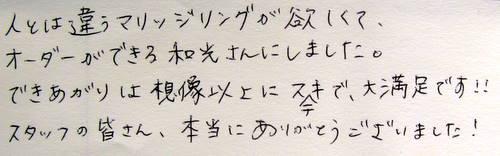 人とは違うマリッジリングが欲しくて、
オーダーができる和光さんにしました。
できあがりは想像以上にステキで、大満足です!!
スタッフの皆さん、本当にありがとうございました!